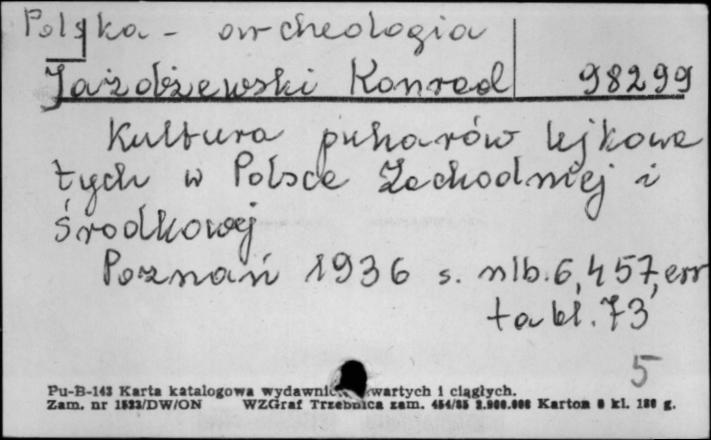 Polska - archeologia
Jażdżewski Konrad 98299
Kultura puharów lejkowa
tych w Polsce Zachodniej i
środkowej
Poznań 1936 s. nlb. 6, 457, err
tabl. 73
5
Pu-B-143 Karta katalogowa wydawnic wartych i ciągłych.
Zam. nr 1523/DW/ON WZGraf Trzebnica zam. 454/85 Karton kl. g.